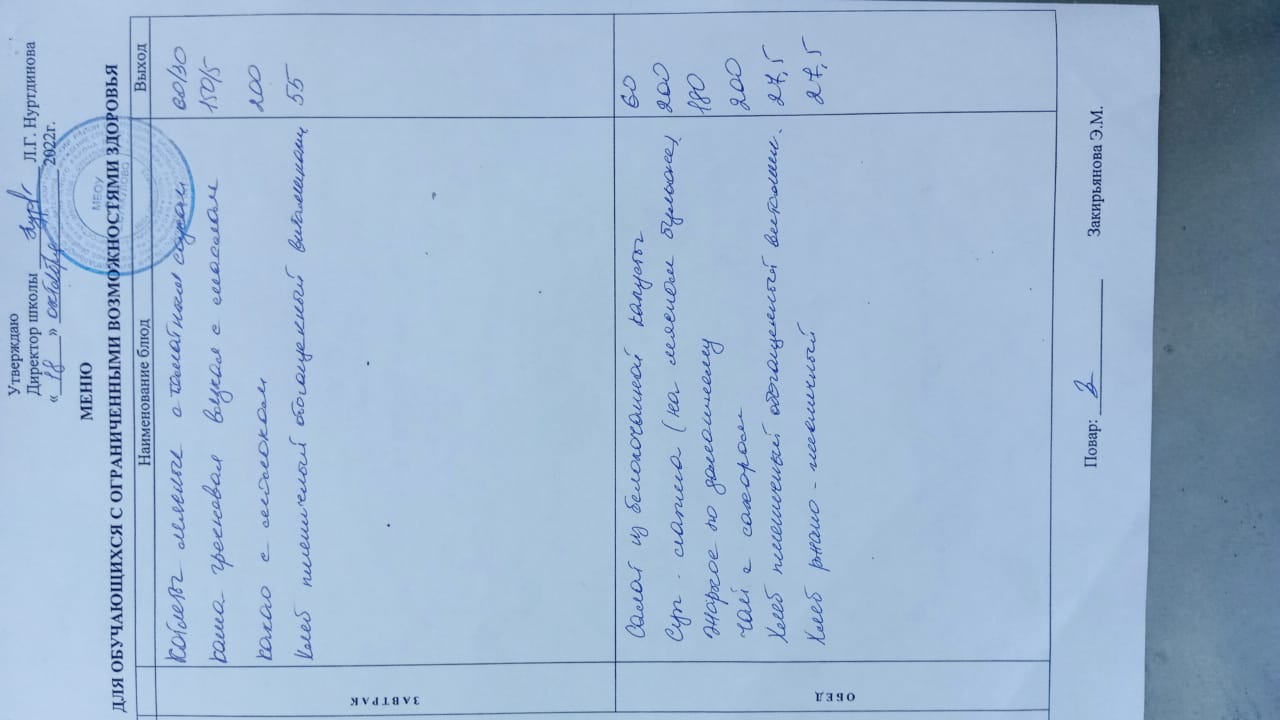 Утверждаю
Директор школы Л.Г. Нуртдинова
« 18 » октября 2022г.
МЕНЮ
ДЛЯ ОБУЧАЮЩИХСЯ С ОГРАНИЧЕННЫМИ ВОЗМОЖНОСТЯМИ ЗДОРОВЬЯ
Наименование блюд Выход
ЗАВТРАК
Котлеты мясные с томатным соусом 60/30
Каша гречневая вязкая с маслом 150/5
Какао с молоком 200
Хлеб пшеничный обогащенный витаминами 55
ОБЕД
Салат из белокочанной капусты 60
Суп-лапша (на мясном бульоне) 200
Жаркое по домашнему 180
Чай с сахаром 200
Хлеб пшеничный обогащенный витамин. 27,5
Хлеб ржано-пшеничный 27,5
Повар: Закирьянова Э.М.
МБОУ